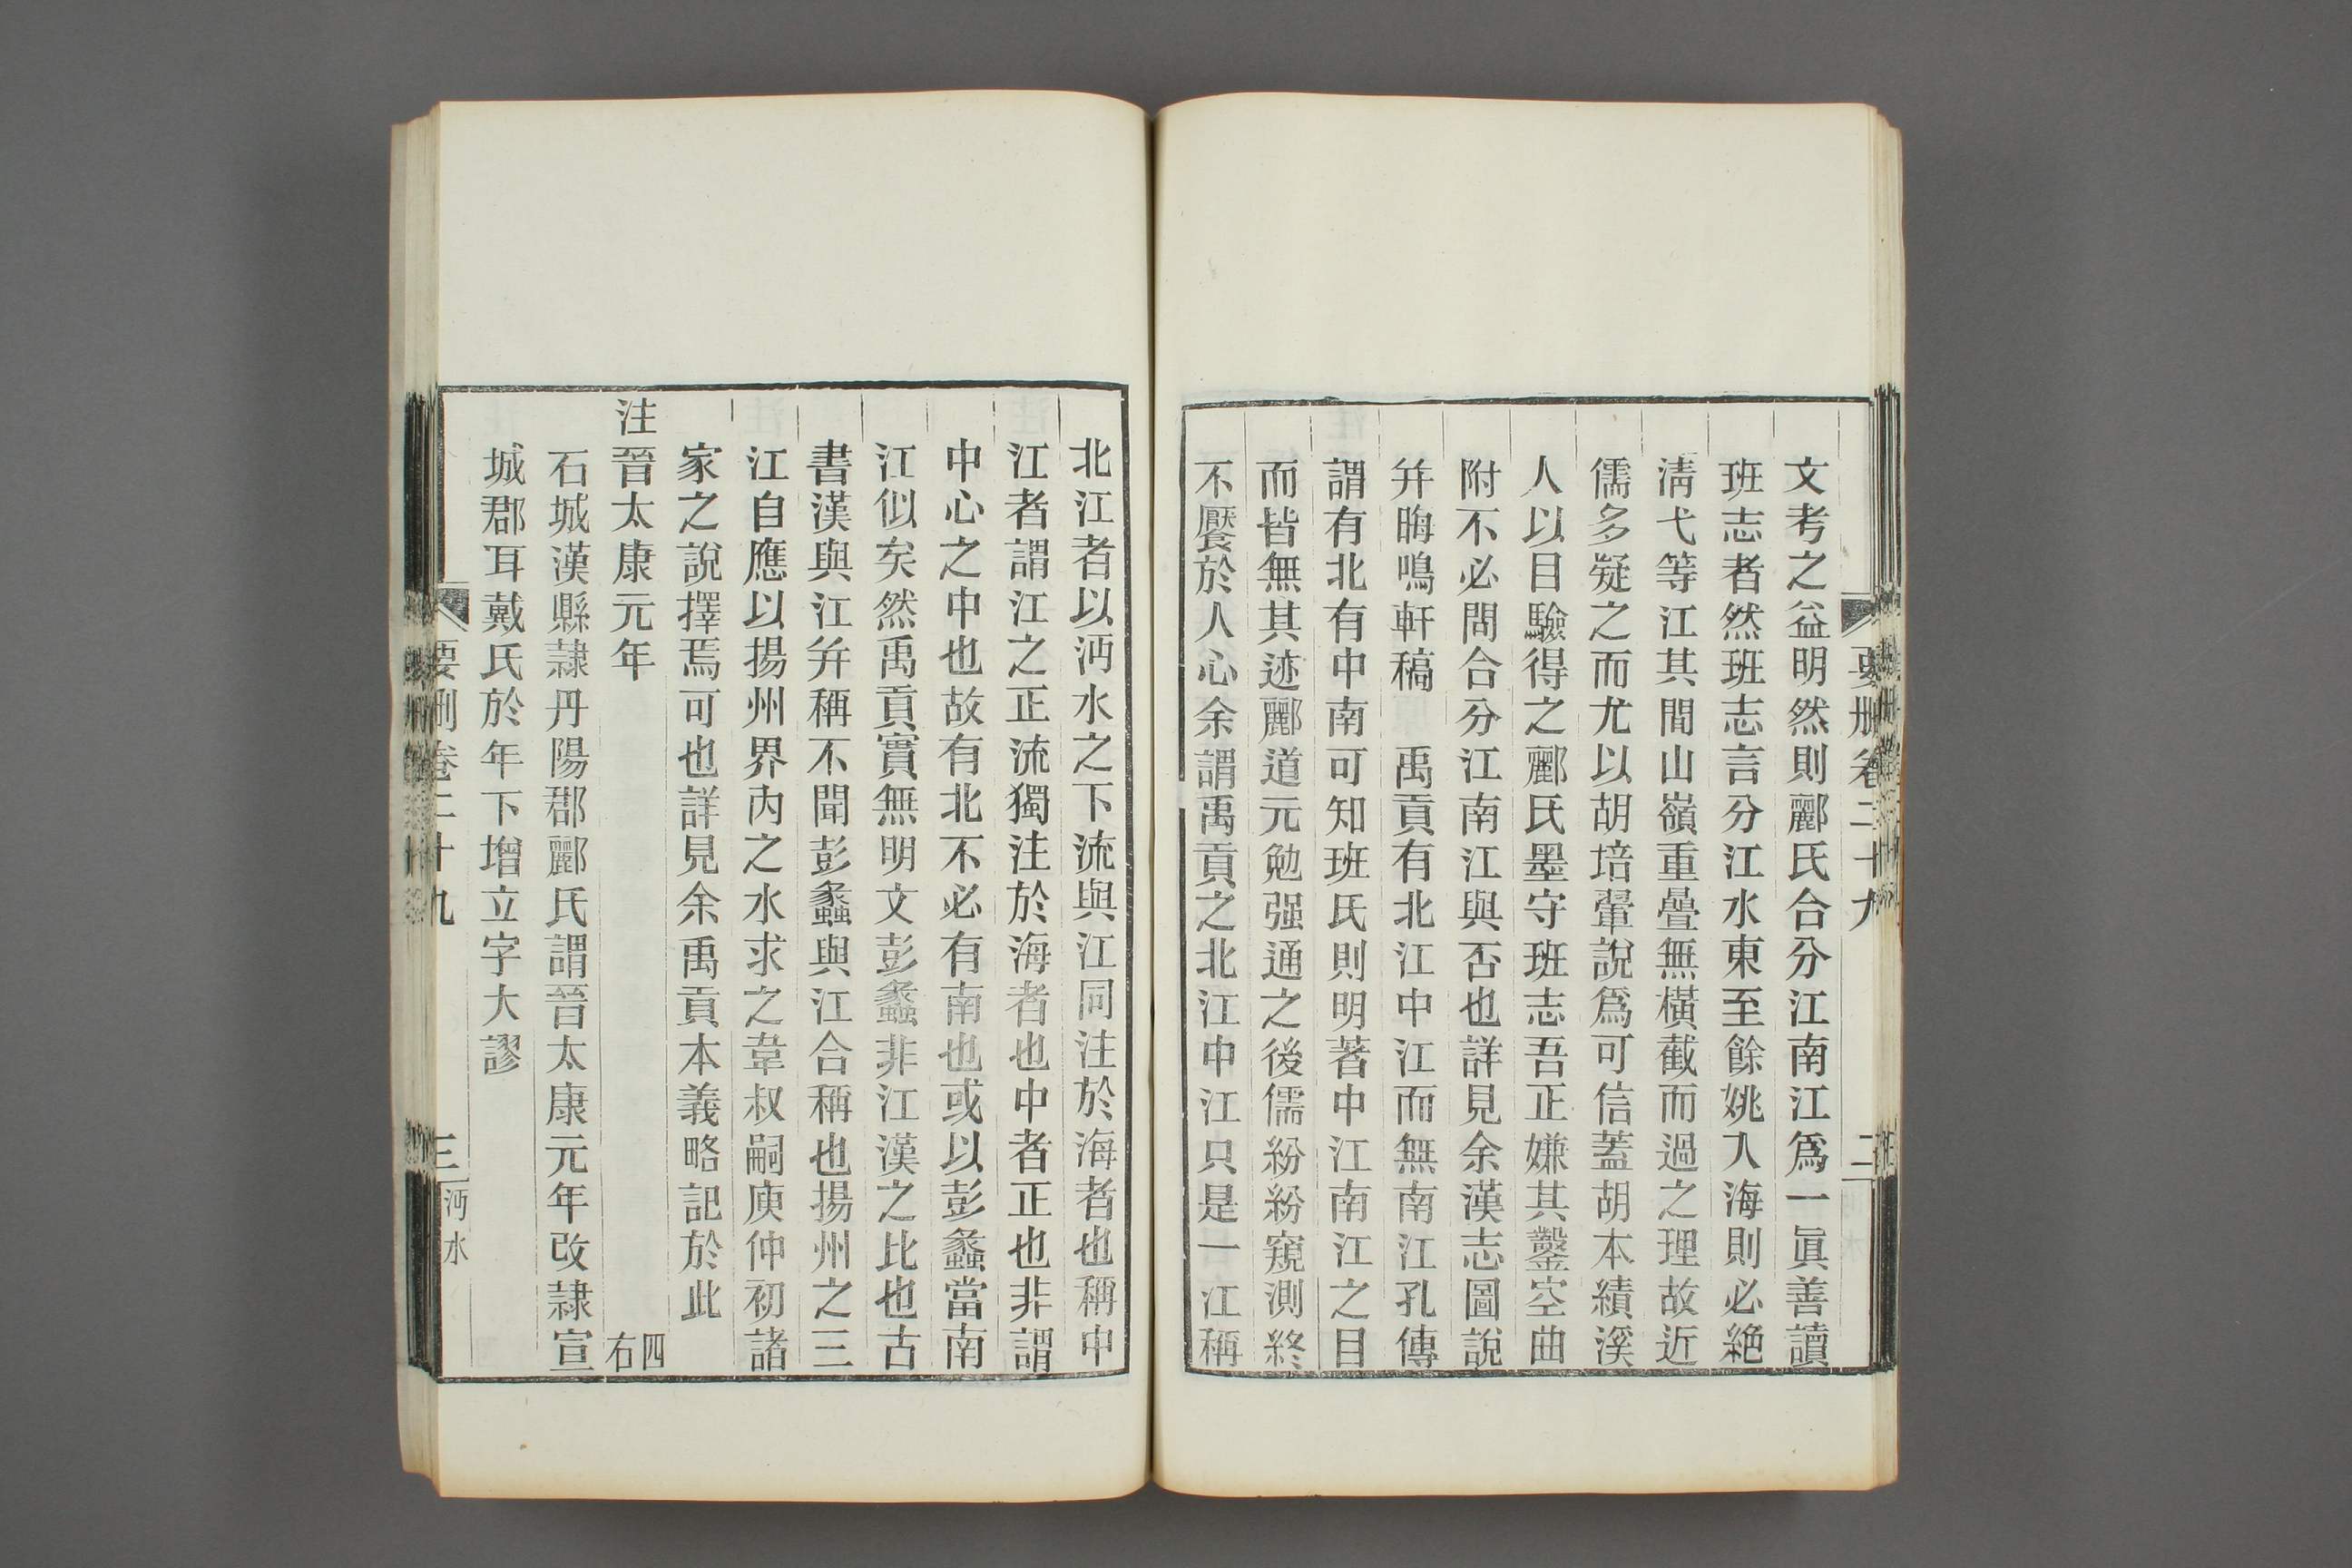 要刪卷二十九 二
文考之益明然則酈氏合分江南江爲一眞善讀
班志者然班志言分江水東至餘姚入海則必絶
淸弋等江其間山嶺重疊無橫截而過之理故近
儒多疑之而尤以胡培翬說爲可信蓋胡本績溪
人以目驗得之酈氏墨守班志吾正嫌其鑿空曲
附不必問合分江南江與否也詳見余漢志圖說
幷晦鳴軒稿　禹貢有北江中江而無南江孔傳
謂有北有中南可知班氏則明著中江南江之目
而皆無其迹酈道元勉强通之後儒紛紛窺測終
不饜於人心余謂禹貢之北江中江只是一江稱
北江者以沔水之下流與江同注於海者也稱中
江者謂江之正流獨注於海者也中者正也非謂
中心之中也故有北不必有南也或以彭蠡當南
江似矣然禹貢實無明文彭蠡非江漢之比也古
書漢與江幷稱不聞彭蠡與江合稱也揚州之三
江自應以揚州界內之水求之韋叔嗣庾仲初諸
家之說擇焉可也詳見余禹貢本義略記於此
注晉太康元年　四右
石城漢縣隷丹陽郡酈氏謂晉太康元年改隷宣
城郡耳戴氏於年下增立字大謬
要刪卷二十九 三 沔水